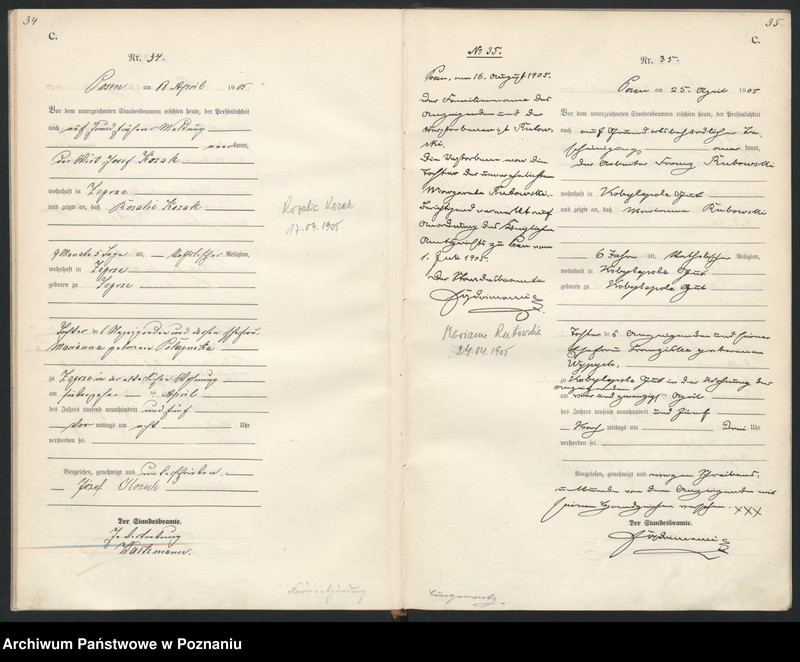 34
C.
Nr. 34.
Posen am 18. April 1905
Vor dem unterzeichneten Standesbeamten erschien heute, der Persönlichkeit
nach auf Grund früherer Meldung
kannt,
der Wirt Josef Kozak
wohnhaft in Zegrze
und zeigte an, daß Rosalie Kozak
9 Monate 5 Tage alt, katholischer Religion,
wohnhaft in Zegrze
geboren zu Zegrze
Tochter des Anzeigenden und dessen Ehefrau
Marianna geborenen
zu Zegrze in der elterlichen Wohnung
am siebzehn ten April
des Jahres tausend neunhundert und fünf
Vor mittags um acht Uhr
verstorben sei.
Vorgelesen, genehmigt und unterschrieben.
Józef Kozak
Der Standesbeamte.
In Vertretung
Rozalie Kozak
17.04.1905
35
C.
No 35.
Posen, am 16. August 1905.
Der Familienname des
Anzeigenden und der
Verstorbenen ist Rutow-
ski.
Die Verstorbene war die
Tochter der unverehelichten
Margareta Rutowski.
Berichtigend vermerkt auf
Anordnung des Königlichen
Amtsgerichts zu Posen vom
1. Juli 1905.
Der Standesbeamte
Marianne Rutowska
24.04.1905
Nr. 35.
Posen am 25. April 1905
Vor dem unterzeichneten Standesbeamten erschien heute, der Persönlichkeit
nach auf Grund ortsbehördlicher Be-
scheinigung aner kannt,
der Arbeiter Franz Rubowski
wohnhaft in Kobylepole Gut
und zeigte an, daß Marianna Rubowski
6 Jahre alt, katholischer Religion,
wohnhaft in Kobylepole Gut
geboren zu Kobylepole Gut
Tochter des Anzeigenden und seiner
Ehefrau Franziska geborenen
zu Kobylepole Gut in der Wohnung des
Anzeigenden
am vier und zwanzigs ten April
des Jahres tausend neunhundert und fünf
Nach mittags um Drei Uhr
verstorben sei.
Vorgelesen, genehmigt und wegen Schreibens-
unkunde von dem Anzeigenden mit
seinem Handzeichen versehen. XXX
Der Standesbeamte.
Archiwum Państwowe w Poznaniu